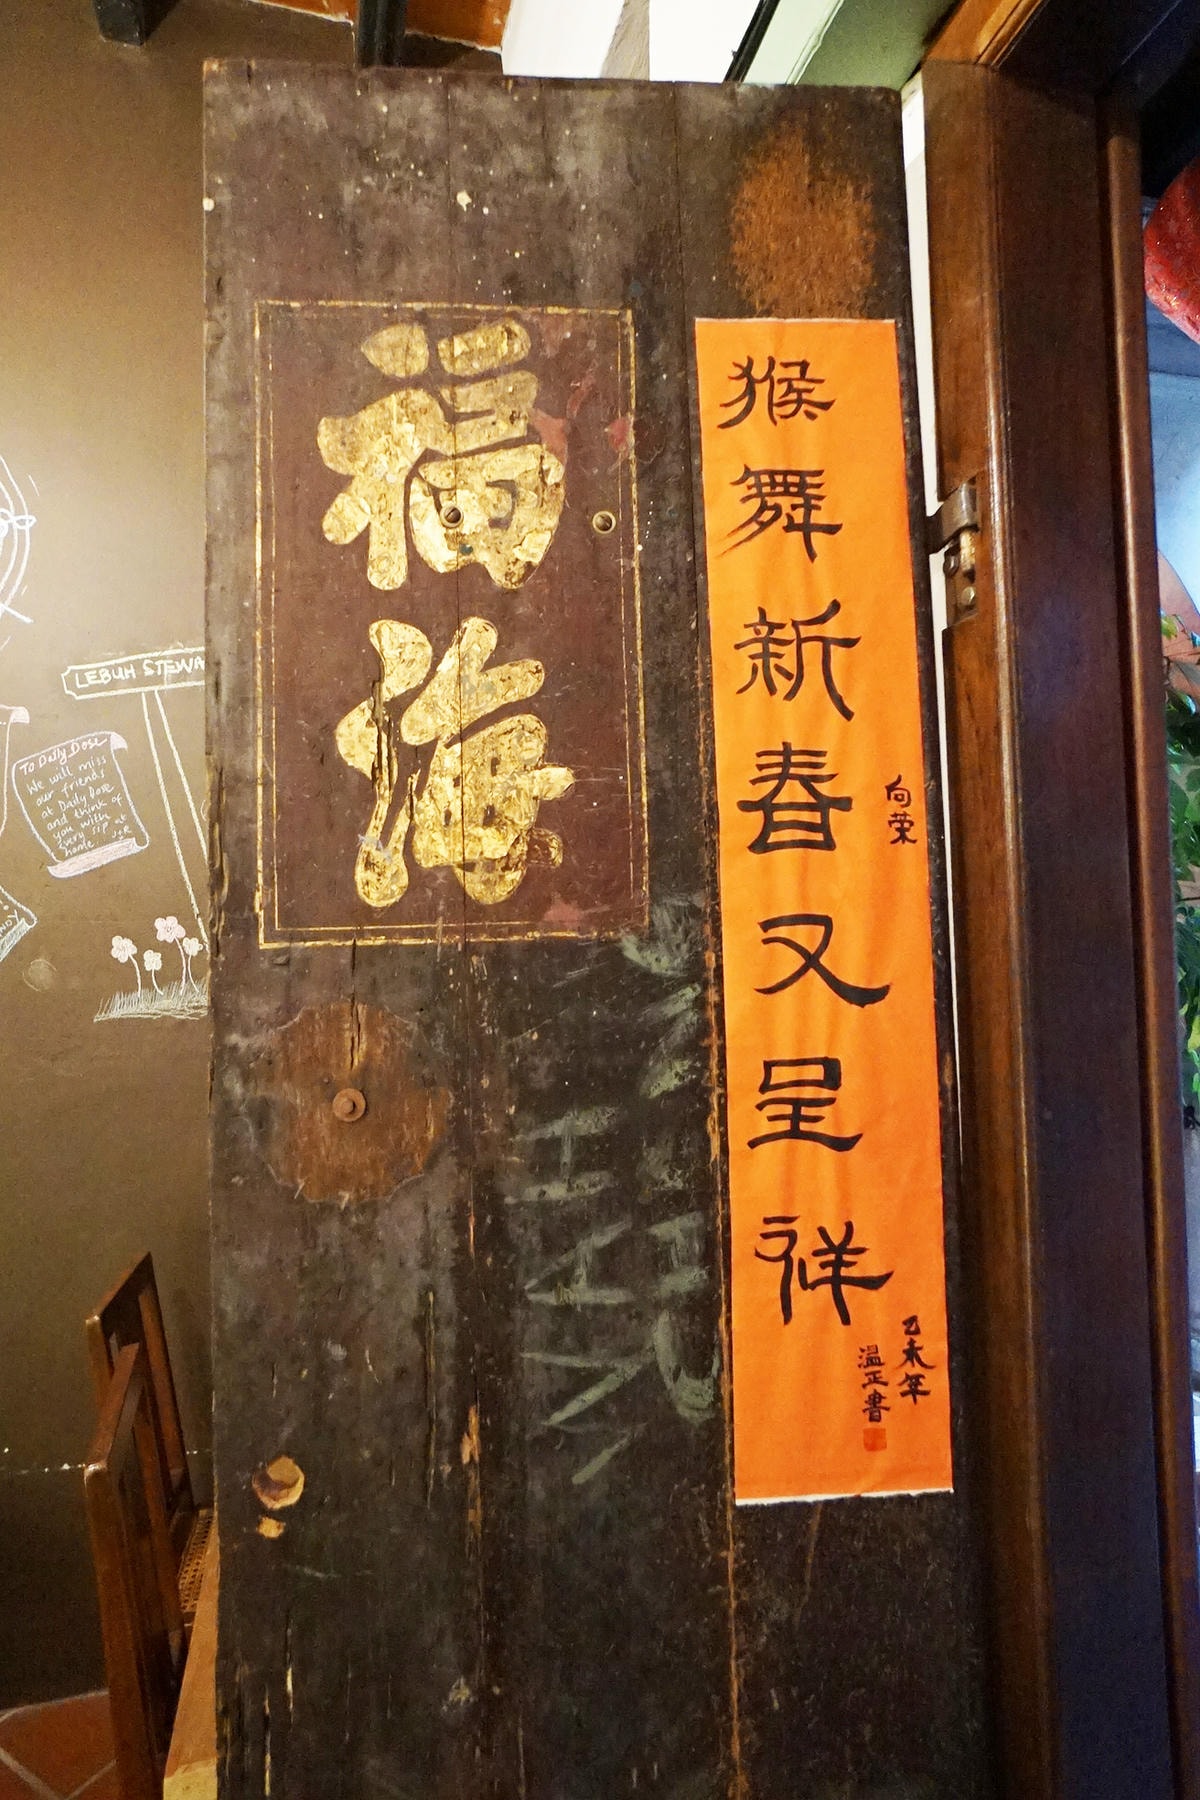 福海
猴舞新春又呈祥
向荣
乙未年
温正書
LEBUH STEWA
To Daily Dose
We will miss
our friends
at Daily Dose
and think of
you with
every sip at
home. J+R